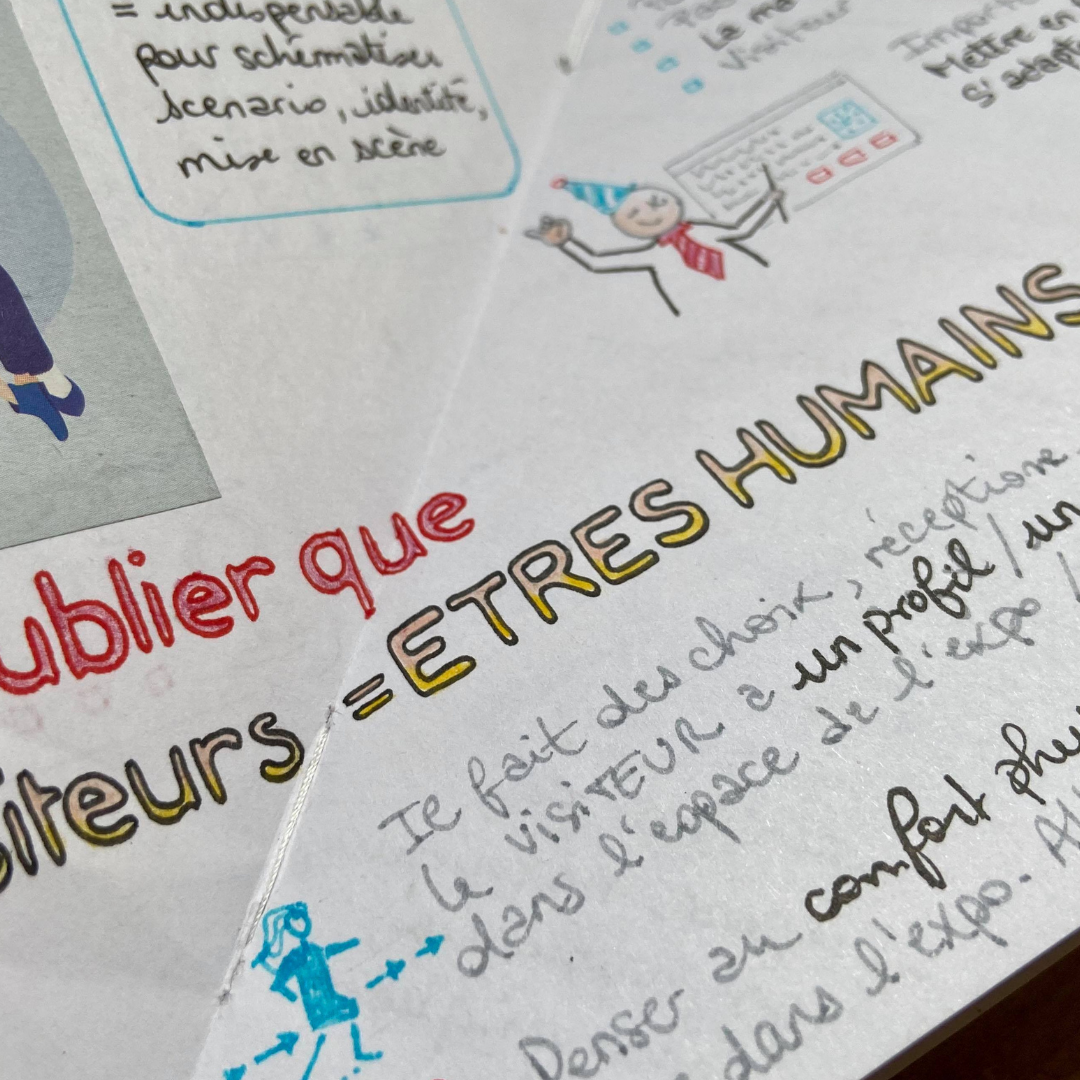 = indispensable
pour schématiser
scenario, identité,
mise en scène
La
visiteur
Mettre en
s'adapt
ublier que
siteurs = ETRES HUMAINS
Il fait des choix, réceptionne
le visiTEUR a un profil / un
dans l'espace de l'expo /
Penser au confort phy
dans l'expo.